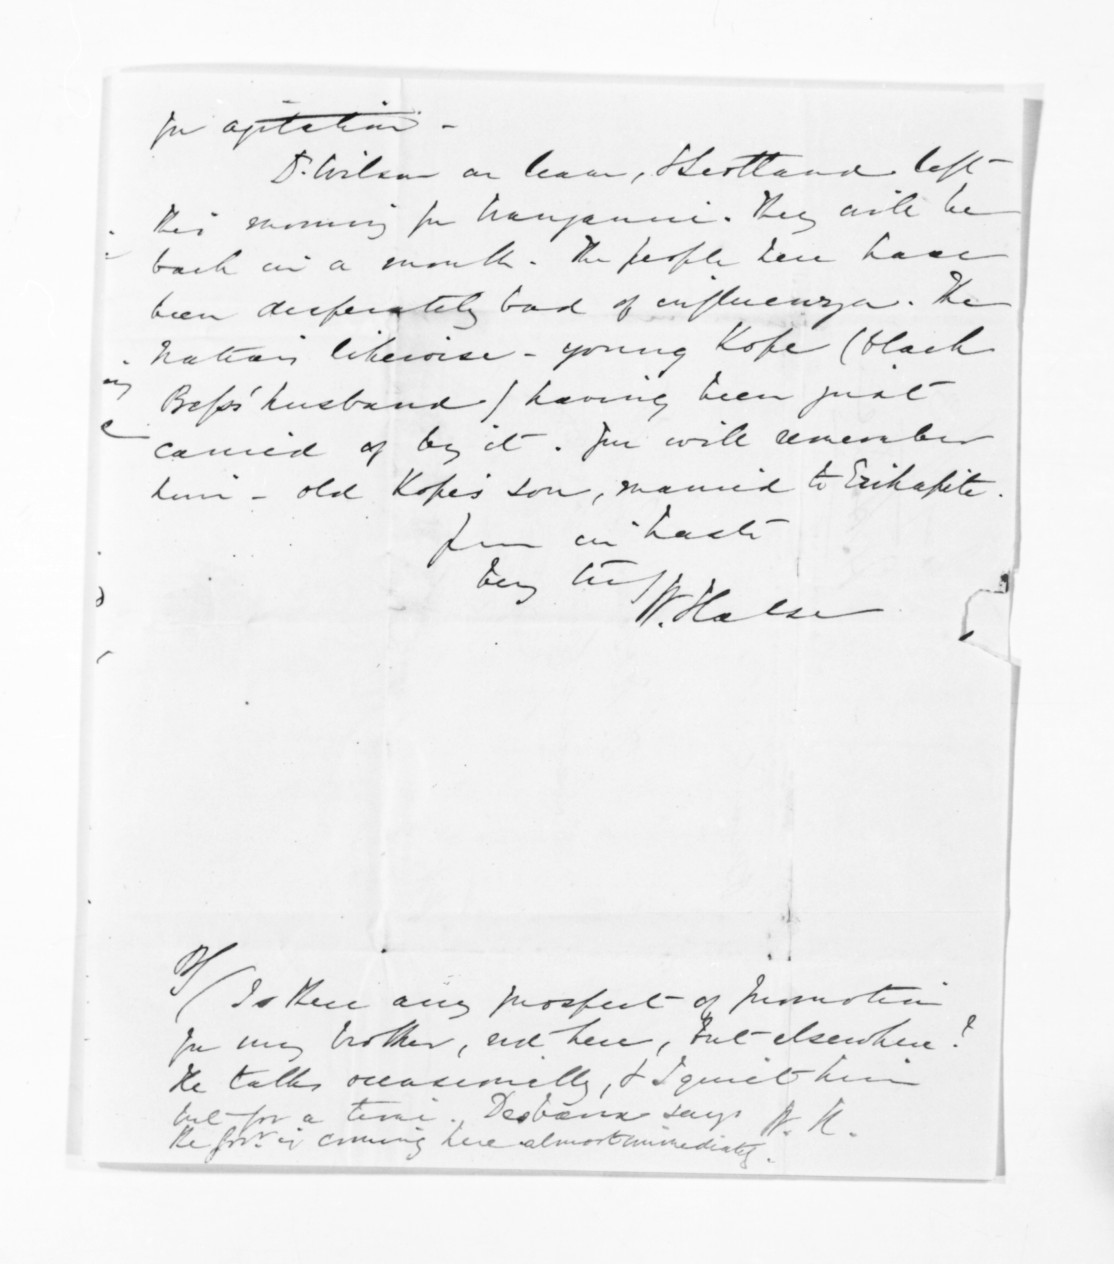 for agitation -
Dr. Wilson on leave, & Scotland left
this morning for Wanganui. They will be
back in a month. The people here have
been desperately bad of influenza. The
Natives likewise - young Kope (black
Bess' husband) having been just
carried of by it. You will remember
him - old Kope's son, married to Erihapite.
from in haste
very truly
W. Halse
PS/ Is there any prospect of promotion
for my brother, not here, but elsewhere?
He talks occasionally, & I quiet him
but for a time. says W. H.
the Govr. is coming here almost immediately.